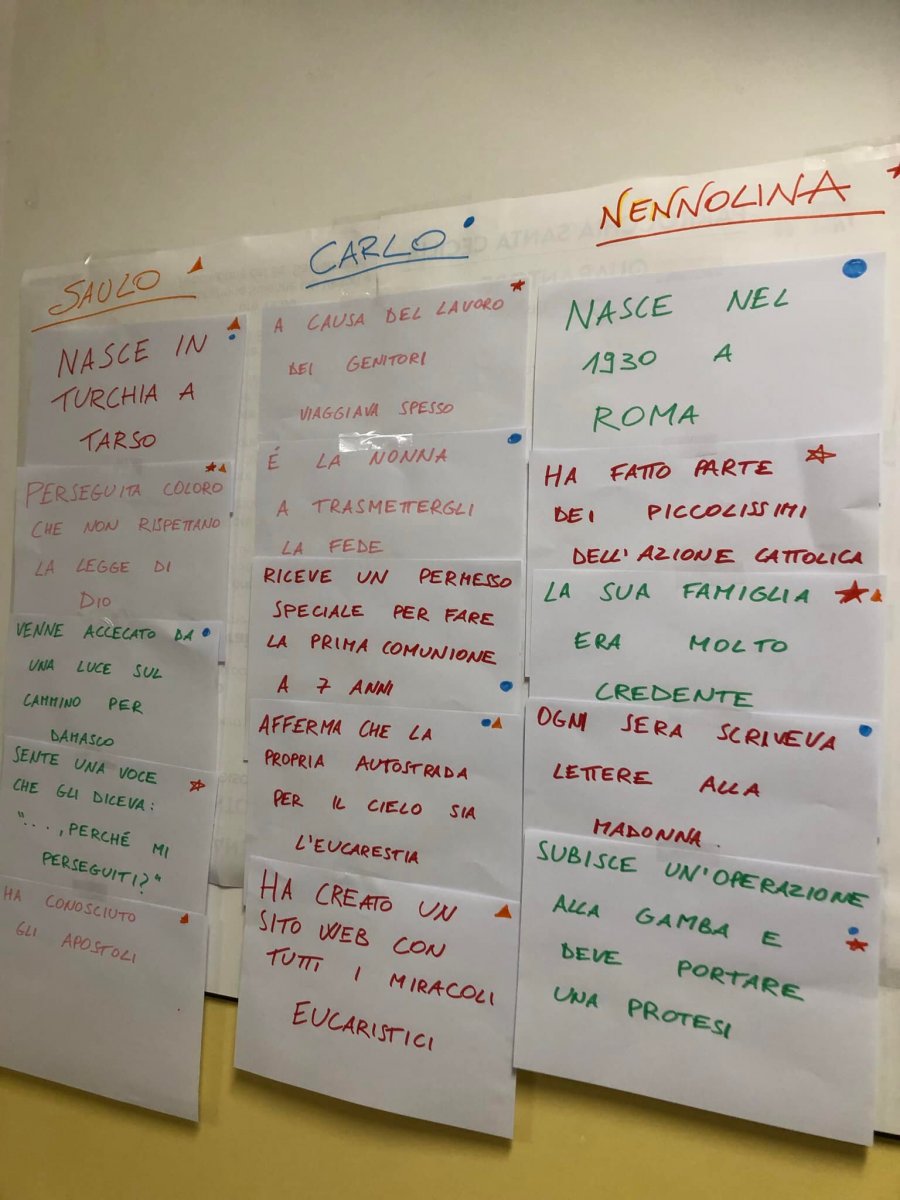 SAULO
NASCE IN
TURCHIA A
TARSO
PERSEGUITA COLORO
CHE NON RISPETTANO
LA LEGGE DI
DIO
VENNE ACCECATO DA
UNA LUCE SUL
CAMMINO PER
DAMASCO
SENTE UNA VOCE
CHE GLI DICEVA:
"..., PERCHÉ MI
PERSEGUITI?"
HA CONOSCIUTO
GLI APOSTOLI
CARLO
A CAUSA DEL LAVORO
DEI GENITORI
VIAGGIAVA SPESSO
É LA NONNA
A TRASMETTERGLI
LA FEDE
RICEVE UN PERMESSO
SPECIALE PER FARE
LA PRIMA COMUNIONE
A 7 ANNI
AFFERMA CHE LA
PROPRIA AUTOSTRADA
PER IL CIELO SIA
L'EUCARESTIA
HA CREATO UN
SITO WEB CON
TUTTI I MIRACOLI
EUCARISTICI
NENNOLINA
NASCE NEL
1930 A
ROMA
HA FATTO PARTE
DEI PICCOLISSIMI
DELL'AZIONE CATTOLICA
LA SUA FAMIGLIA
ERA MOLTO
CREDENTE
OGNI SERA SCRIVEVA
LETTERE ALLA
MADONNA.
SUBISCE UN'OPERAZIONE
ALLA GAMBA E
DEVE PORTARE
UNA PROTESI